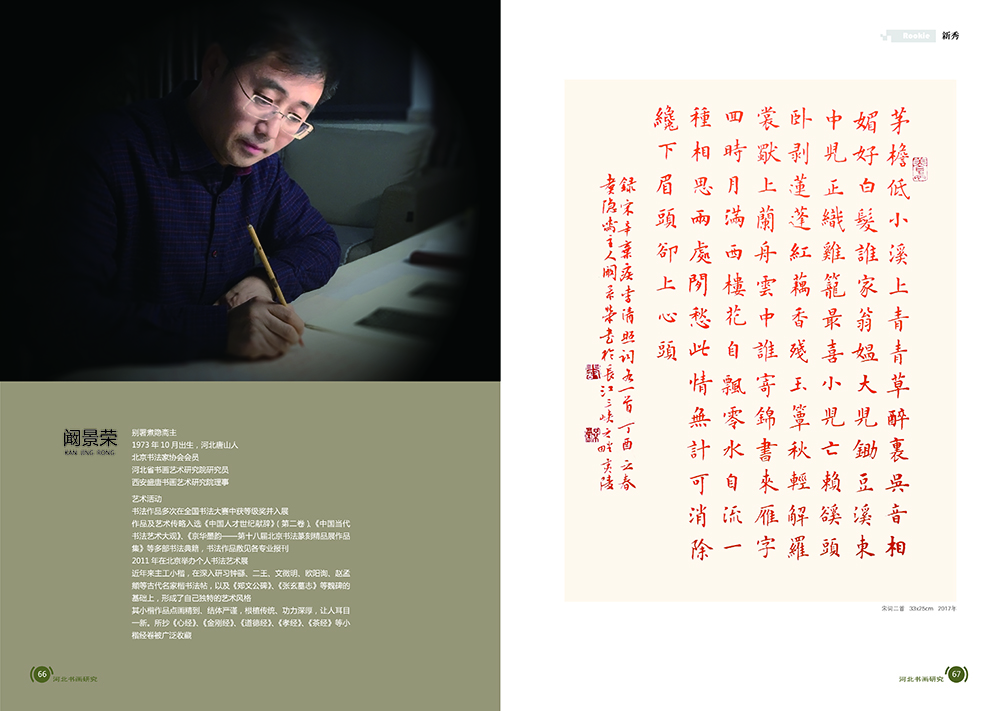 阚景荣
KAN JING RONG
别署煮隐斋主
1973 年 10 月出生，河北唐山人
北京书法家协会会员
河北省书画艺术研究院研究员
西安盛唐书画艺术研究院理事
艺术活动
书法作品多次在全国书法大赛中获等级奖并入展
作品及艺术传略入选《中国人才世纪献辞》( 第二卷 )、《中国当代
书法艺术大观》、《京华墨韵——第十八届北京书法篆刻精品展作品
集》等多部书法典籍，书法作品散见各专业报刊
2011 年在北京举办个人书法艺术展
近年来主工小楷，在深入研习钟繇、二王、文徵明、欧阳询、赵孟
頫等古代名家楷书法帖，以及《郑文公碑》、《张玄墓志》等魏碑的
基础上，形成了自己独特的艺术风格
其小楷作品点画精到、结体严谨，根植传统、功力深厚，让人耳目
一新。所抄《心经》、《金刚经》、《道德经》、《孝经》、《茶经》等小
楷经卷被广泛收藏
66
河北书画研究
Rookie 新秀
茅檐低小溪上青青草醉裏吳音相
媚好白髮誰家翁媼大兒鋤豆溪東
中兒正織雞籠最喜小兒亡賴谿頭
卧剥蓮蓬紅藕香殘玉簟秋輕解羅
裳獨上蘭舟雲中誰寄錦書來雁字
四時月滿西樓花自飄零水自流一
種相思兩處閒愁此情無計可消除
纔下眉頭卻上心頭
録宋辛棄疾李清照词各一首丁酉之春
煮隐斋主人阚景荣书於長江三峡之畔夷陵
宋词二首 33x26cm 2017年
河北书画研究
67